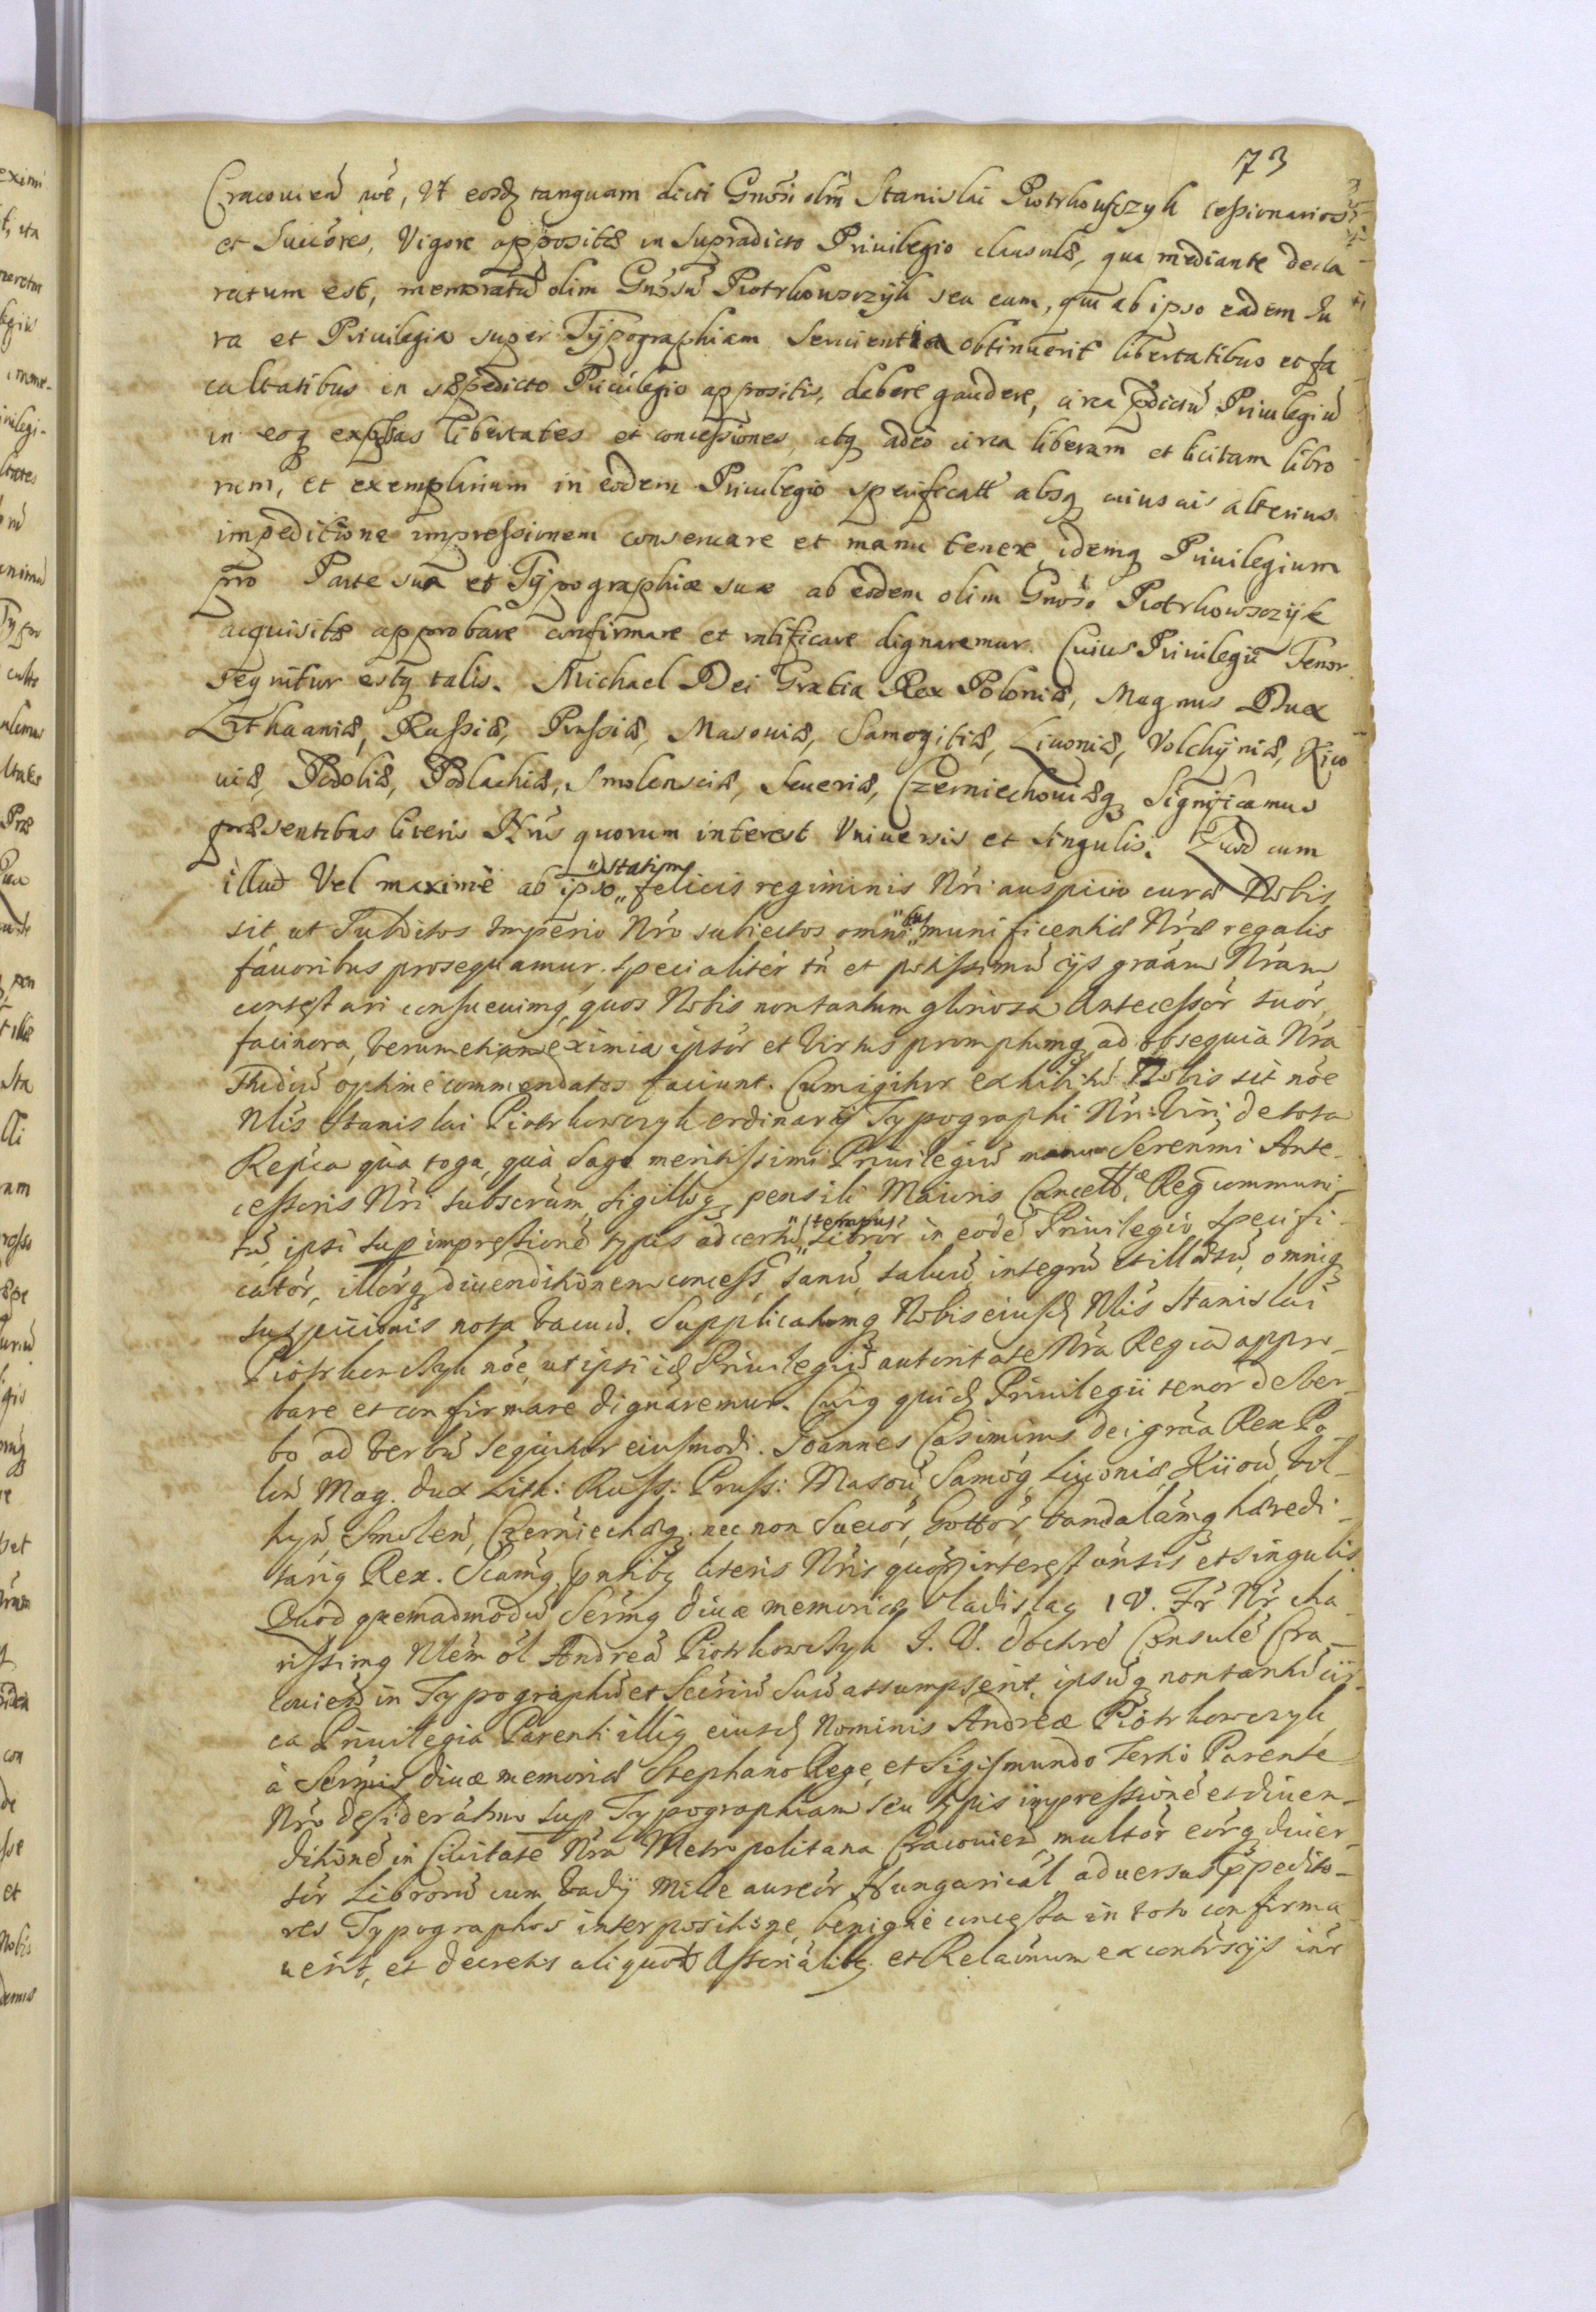 73
Cracovien nõe, Ut eosdq tanquam dicti Gnõsi olim Stanislai Piotrkowszyk cessionarios
et Succores, Vigore appositæ in supradicto Privilegio clausulæ, qua mediante decla
ratum est, memoratũ olim Gnõsũ Piotrkowszyk seu eum, qui ab ipso eadem Ju
ra et Privilegia super Typographiam servientia obtinuerit libertatibus et fa
cultatibus in sæpedicto Privilegio appositis, debere gaudere, circa pdictũ Privilegiũ
in eoq expssas libertates et concessiones, atq adeò circa liberam et licitam libro
rum, et exemplarium in eodem Privilegio specificatt absq cuiusvis alterius
impeditione impressionem conservare et manu tenere, idemq Privilegium
pro Parte sua et Typographiæ suæ ab eodem olim Gnõso Piotrkowszyk
acquisitæ approbare confirmare et ratificare dignaremur. Cuius Privilegii Tenor
sequitur estq talis. Michael Dei Gratia Rex Poloniæ, Magnus Dux
Lithuaniæ, Russiæ, Prussiæ, Masoviæ, Samogitiæ, Livoniæ, Volchyniæ, Kiio
viæ, Podoliæ, Podlachiæ, Smolensciæ, Severiæ, Czerniechoviæq Significamus
præsentibus literis Nris quorum interest Universis et singulis. Quod cum
illud vel maximè ab ipso „statim felicis regiminis Nri auspicio curæ Nobis
sit ut Subditos Imperio Nro subiectos omni„bus munificentiæ Nræ regalis
favoribus prosequamur. specialiter tñ et potissimũ ijs gratiam Nram
contestari consuevimq, quos Nobis non tantum gloriosa Antecessor suor,
facinora, verum etiam eximia ipsor et virtus promptumq ad obsequia Nra
studiũ optimè commendatos faciunt. Cum igitur exhibitũ Nobis sit nõe
Nlis Stanislai Piotrkowczyk ordinarij Typographi Nri Viri, de tota
Repca quà toga, quà sago meritissimi Privilegiũ manu Serenmi Ante-
cessoris Nri subscrum, sigilloq pensili Maioris Cancell. Regc communi-
tũ, ipsi sup impressionẽ typis ad certũ „tempus libror in eodẽ Privilegio specifi-
cator, illorq divenditionem concess, sanũ, salvũ, integrũ et illæsũ, omniq
suspicionis nota vacuũ. Supplicatumq Nobis eiusd Nlis Stanislai
Piotrkowczyk nõe, ut ipsi id Privilegiũ autoritate Nra Regia appro-
bare et confirmare dignaremur. Cuiq quid Privilegii tenor de ver
bo ad verbũ sequitur eiusmodi. Joannes Casimirus dei gratia Rex Po-
lon Mag. dux Lith: Russ: Pruss: Masou, Samog, Livoniæ, Kiiou, Vol-
hyn, Smolen, Czerniechæq. nec non Suecor, Gottor, Vandalamq hæredi-
tariq Rex. Scamq pntibq literis Nris quor interest onsis et singulis
Quod quemadmodũ Sermq divæ memoriæ Vladislaq IV. Fr Nr cha
rissimq Nlem ol Andreã Piotrkowczyk J. V. doctorẽ Consulẽ Cra-
covieñ in Typographũ et Servũ suũ assumpserit, ipsũq non tantũ cir-
ca Privilegia Parenti illiq eiusd Nominis Andreæ Piotrkowczyk
à Sermis divæ memoriæ Stephano Rege, et Sigismundo Tertio Parente
Nro desideratmo sup Typographiam seu typis impressionẽ et diven-
ditionẽ in Civitate Nra Metropolitana Cracovien multor eorq diver-
sor Librorũ cum vadij Mille aureor Hungarical adversus ppedito-
res Typographos interpositione, benignè concessa in toto confirma
verit, et decretis aliquot Assorialibq et Relaonum ex contrscijs inr